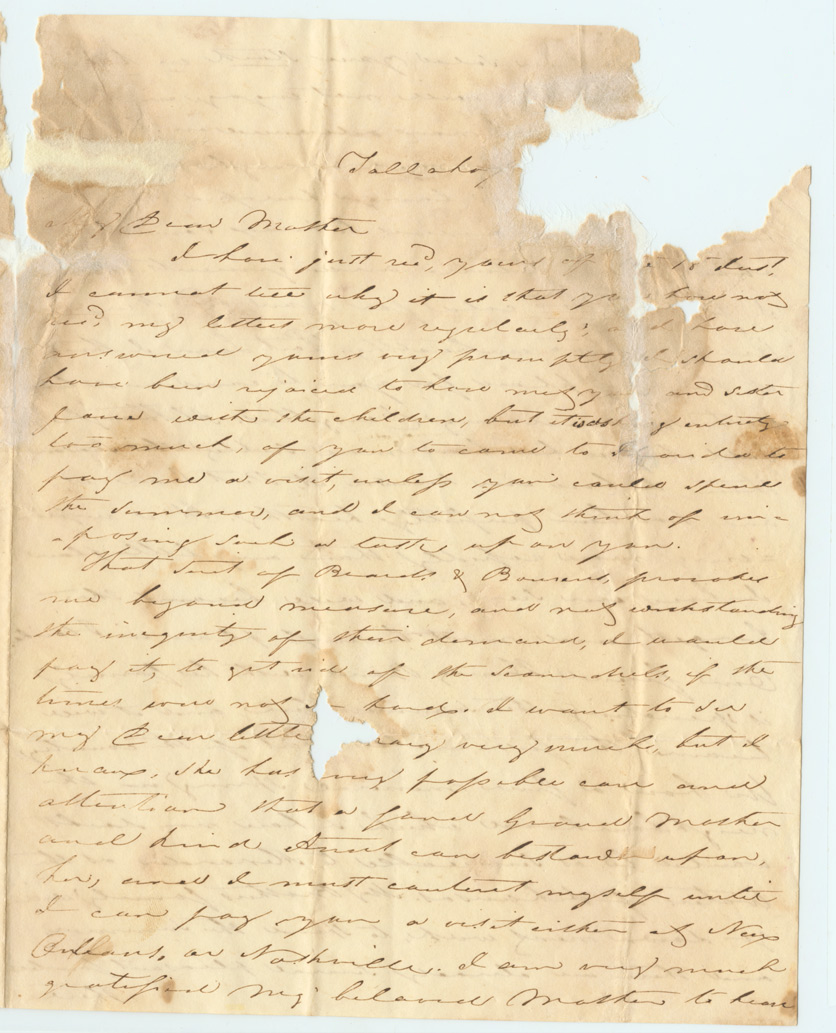 Tallaha
My Dear Mother
I have just recd, yours of 15 Inst,
I cannot see why it is that you have not
recd my letters more regularly, and have
answered yours very promptly. I should
have been rejoiced to have met you and sister
Jane with the children, but it was entirely
too much, of you to come to Florida to
pay me a visit, unless you could spend
the summer, and I can not think of im-
-posing such a task upon you.
That suit of Beards & Bowens, provokes
me beyond measure, and not withstanding
the iniquity of their demand, I would
pay it, to get rid of the scoundrels, if the
times were not so hard. I want to see
my Dear little very much, but I
know, she has every possible care and
attention that a fond Grand Mother
and kind Aunt can bestow upon,
her, and I must content myself until
I can pay you a visit either at New
Orleans, or Nashville. I am very much
gratified my beloved Mother to hear